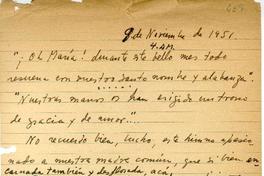 8 de Noviembre de 1951.
4. A.M.
"¡Oh María! durante este bello mes todo
resuena con vuestro santo nombre y alabanza".
"Nuestras manos os han erigido un trono
de gracia y de amor"....
No recuerdo bien, Lucho, este himno apasio
nado a nuestra madre común, que si bien en
carnada también y desflorada, acá,